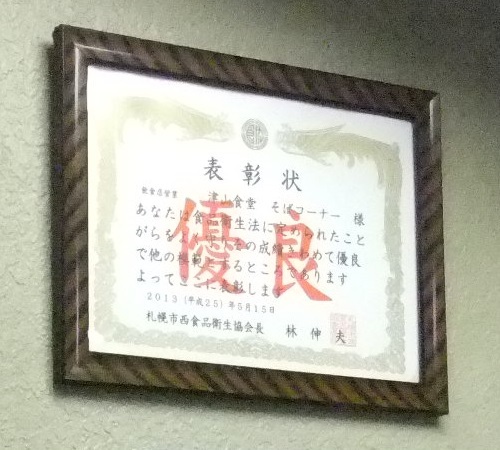 表彰状
飲食店営業 津々食堂 そばコーナー 様
あなたは食品衛生法に定められたこと
がらをよく守りその成績きわめて優良
で他の模範となるところであります
よってここに表彰します
優良
2013(平成25)年5月15日
札幌市西食品衛生協会長 林 伸夫